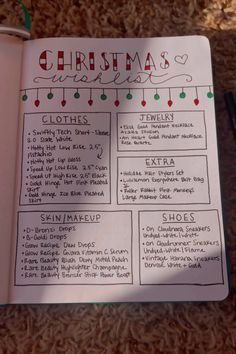 CHRISTMAS
wishlist
CLOTHES
• Swiftly Tech Short-Sleeve
2.0 Slate White
• Hotty Hot Low Rise, 2.5"
pistachio
• Hotty Hot Low Rise, 2.5"
• Speed Up Low Rise, 2.5"
• Speed Up High Rise, 2.5" Black
• Gold Hinge Hot Pink Pleated
Skirt
• Gold Hinge Ice Blue Pleated
Skirt
JEWELRY
• Elisa Gold Pendant Necklace
• Ari Heart Gold Pendant Necklace
Rose Quartz
EXTRA
• Holiday Hair Stylers Set
• Lululemon Everywhere Belt Bag
• Pink
Large Makeup Case
SKIN/MAKEUP
• D-Bronzi Drops
• B-Goldi Drops
• Glow Recipe Dew Drops
• Glow Recipe Guava Vitamin C Serum
• Rare Beauty Blush Dewy
• Rare Beauty Highlighter Champagne
• Rare Beauty Bronzer Stick Power Boost
SHOES
• On Cloudnova Sneakers
Undyed-White/White
• On Cloudrunner Sneakers
Undyed-White/Flame
• Vintage Havana Sneakers
White + Gold